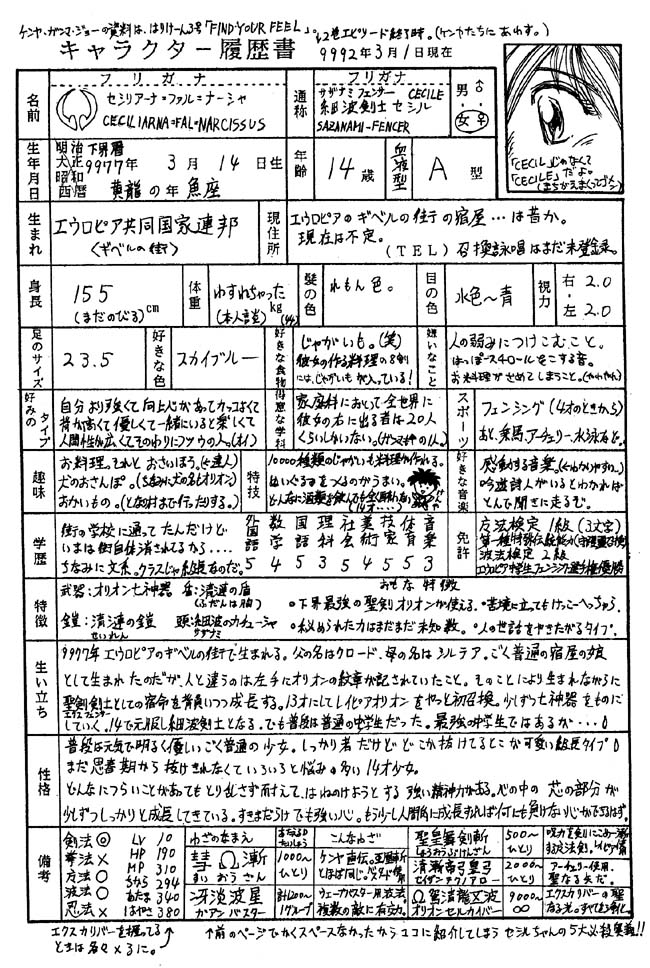 ケンヤ、ガンマ、ジョーの資料は、はりけーん3号「FIND YOUR FEEL」。
2巻エピソード終了時。(ケンヤたちにあわす。)
キャラクター履歴書
9992年3月1日現在
フリガナ
名前
セシリアーナ=ファル=ナーシャ
CECILIARNA=FAL=NARCISSUS
フリガナ
通称
サザナミフェンサー CECILE
細波剣士セシル
SAZANAMI-FENCER
男・女
「CECIL」じゃなくて
「CECILE」だよ。
(まちがえまくってゴメン)
生年月日
明治
大正
昭和
西暦
下界暦
9977年 3月 14日生
黄龍の年 魚座
年齢
14歳
血液型
A型
生まれ
エウロピア共同国家連邦
(ギベルの街)
現住所
エウロピアのギベルの街の宿屋…は昔か。
現在は不定。
(TEL) 召換詠唱はまだ未登録。
身長
155cm
(まだのびる)
体重
わすれちゃったkg
(本人談)
髪の色
れもん色。
目の色
水色〜青
視力
右 2.0
左 2.0
足のサイズ
23.5
好きな色
スカイブルー
好きな食物
じゃがいも。(笑)
彼女の作る料理の8割
には、じゃがいもが入っている!
嫌いなこと
人の弱みにつけこむこと。
はっぽースチロールをこする音。
お料理がさめてしまうこと。
好みのタイプ
自分より強くて向上心があってカッコよくて
背が高くて優しくて一緒にいると楽しくて
人間性が広くてそのわりにフツウの人。
得意な学科
家庭科において全世界に
彼女の右に出る者は20人
くらいしかいない。
スポーツ
フェンシング(4才のときから)
あと、乗馬、アーチェリー、水泳など。
趣味
お料理。それとおさいほう。(達人)
犬のおさんぽ。(ちなみに犬の名もオリオン)
おかいもの。(となり村まで行ったりする。)
特技
10000種類のじゃがいも料理が作れる。
ぬいぐるみをつくるのがうまい。
好きな音楽
感動する音楽。
吟遊詩人がいるとわかれば
とんで聞きに走るむ。
学歴
街の学校に通ってたんだけど
いまは街自体消されてるから....
ちなみに文系。クラスじゃ級長なのだ。
外国語 5
数学 4
国語 5
理科 3
社会 5
美術 4
技家 5
体育 5
音楽 3
免許
方法検定1級(3文字)
波法検定2級
エウロピア中学生フェンシング選手権優勝
特徴
おもな特徴
武器:オリオン七神器 盾:清漣の盾
(ふだんは腕)
鎧:清漣の鎧 頭:細波のカチューシャ
せいれん サザナミ
○下界最強の聖剣オリオンが使える。○苦境に立ってもけっこーへっちゃら。
○秘められた力はまだまだ未知数。○人の世話をやきたがるタイプ。
生い立ち
9977年エウロピアのギベルの街で生まれる。父の名はクロード、母の名はシルテア。ごく普通の宿屋の娘
として生まれたのだが、人と違うのは左手にオリオンの紋章が記されていたこと。そのことにより生まれながらに
聖剣剣士としての宿命を背負いつつ成長する。13才にしてレイピアオリオンをやっと初召換。少しずつ七神器をものに
していく。14で元服し細波剣士となる。でも普段は普通の中学生だった。最強の中学生ではあるが・・・。
性格
普段は元気で明るく優しいごく普通の少女。しっかり者だけどどこか抜けてるとこが可愛い級長タイプ。
まだ思春期から抜けきれなくていろいろと悩みの多い14才少女。
どんなにつらいことがあってもとり乱さず耐えて、はねのけようとする強い精神力がある。心の中の芯の部分が
少しずつしっかりと成長してきている。すきまだらけでも強い心。もう少し人間的に成長すれば何にも負けない心ができるはず。
備考
剣法◎
拳法×
方法○
波法○
忍法×
LV 10
HP 190
MP 310
ちから 294
あたま 340
はやさ 380
わざのなまえ
こんなわざ
彗Ω漸
まいおうさん
1000〜
ひとり
冴淡波星
ガアンバスター
計1200〜
1グループ
ウェーブバスター用波法。
複数の敵に有効。
聖皇舞剣斬
500〜
ひとり
清漸帝弓皇弓
セイザンテクノアロー
2000〜
ひとり
アーチェリー使用。
聖なる矢だ。
オリオンセルカイバー
9000〜
∞
エクスカリバーの聖
エクスカリバーを握ってる
ときは各々×3に。
↑前のページでかくスペースなかったからココに紹介してしまうセシルちゃんの5大必殺奥義!!